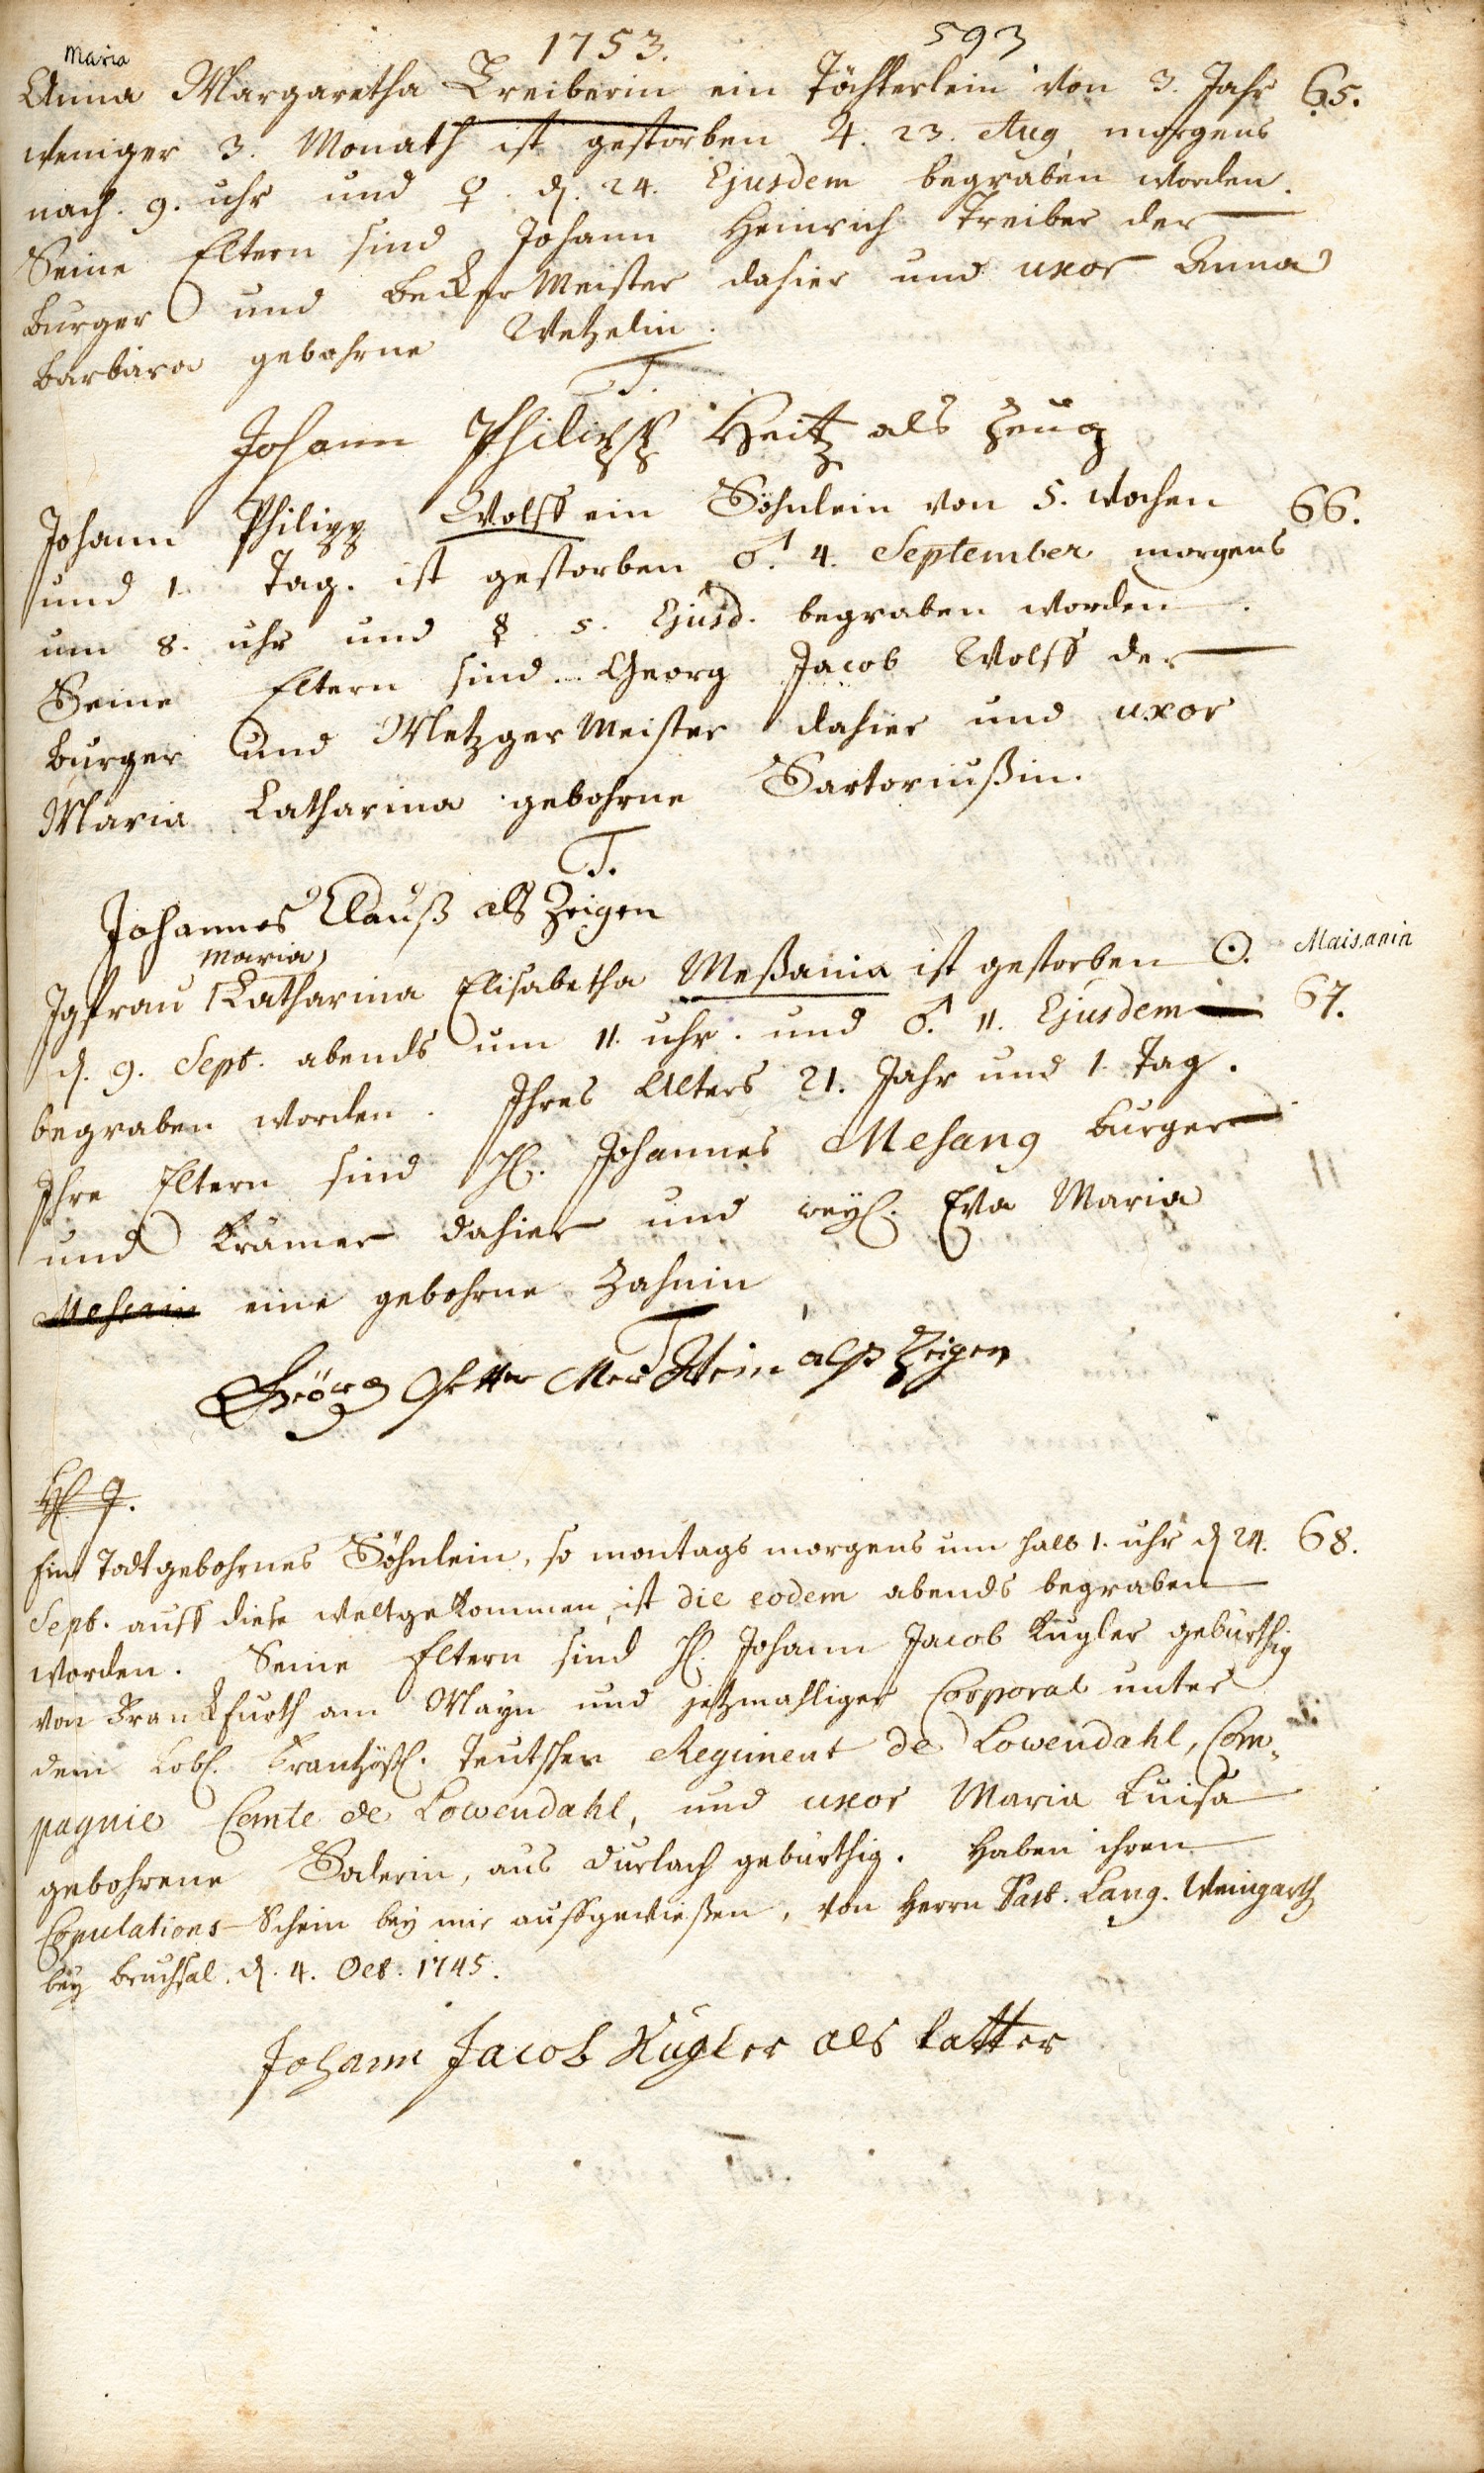 1753. 593
Maria
Anna Margaretha Treiberin ein Töchterlein von 3. Jahr 65.
weniger 3. Monath ist gestorben ♃. 23. Aug. morgens
nach. 9. uhr und ♀. d. 24. Ejusdem begraben worden.
Seine Eltern sind Johann Heinrich Treiber der
Burger und Becker Meister dahier und uxor Anna
Barbara gebohrne Wetzelin.
T.
Johann Philipp Heitz als Zeug
Johann Philipp Wolff ein Söhnlein von 5. Wochen 66.
und 1. Tag. ist gestorben ♂. 4. September morgens
um 8. uhr und ☿. 5. Ejusd. begraben worden.
Seine Eltern sind Georg Jacob Wolff der
Burger und Metzger Meister dahier und uxor
Maria Catharina gebohrne Sartoriußin.
T.
Johannes Clauß als Zeigen
Maria
Jgfrau Catharina Elisabetha Meßania ist gestorben ☉. Maisanin
d. 9. Sept. abends um 11. uhr. und ♂. 11. Ejusdem 67.
begraben worden. Ihres Alters 21. Jahr und 1. Tag.
Ihre Eltern sind H. Johannes Mesang Burger
und Krämer dahier und weyl. Eva Maria
eine gebohrne Zahnin
T
Geörg alß Zeigen
Ein Todtgebohrnes Söhnlein, so montags morgens um halb 1. uhr d 24. 68.
Sept. auff diese Welt gekommen, ist die eodem abends begraben
worden. Seine Eltern sind H. Johann Jacob Kugler gebürthig
von Franckfurth am Mayn und jetzmahliger Corporal unter
dem Lobl. Frantzösl. Teutschen Regiment de Lowendahl, Com-
pagnie Comte de Lowendahl, und uxor Maria Luisa
gebohrene Soderin, aus Durlach gebürthig. Haben ihren
Copulations-Schein bey mir auffgewießen, von Herrn Past. Lang. Weingarth
bey Bruchsal. d. 4. Oct. 1745.
Johann Jacob Kugler als Vatter